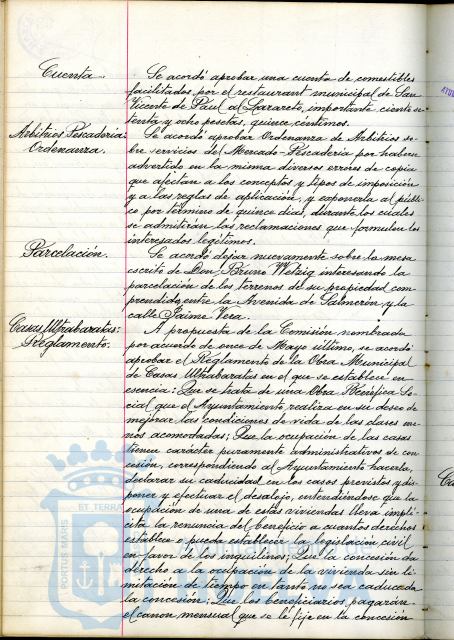 Cuenta.
Se acordó aprobar una cuenta de comestibles
facilitados, por el restaurant municipal de San
Vicente de Paul al Lazareto, importante ciento se-
tenta y ocho pesetas, quince céntimos.
Arbitrios Pescadería:
Ordenanza.
Se acordó aprobar Ordenanza de Arbitrios so-
bre servicios de Mercado-Pescadería por haberse
advertido en la misma diversos errores de copia
que afectan a los conceptos y tipos de imposición
y a las reglas de aplicación, y exponerla al públi-
co por término de quince días, durante los cuales
se admitirán las reclamaciones que formulen los
interesados legítimos.
Parcelación.
Se acordó dejar nuevamente sobre la mesa
escrito de Don Bruno Wetzig interesando la
parcelación de los terrenos de su propiedad com-
prendido entre la Avenida de Salmerón y la
calle Jaime Vera.
Casas Ultrabaratas:
Reglamento:
A propuesta de la Comisión nombrada
por acuerdo de once de Mayo último, se acordó
aprobar el Reglamento de la Obra Municipal
de Casas Ultrabaratas en el que se establece en
esencia: Que se trata de una Obra Benéfica So-
cial que el Ayuntamiento realiza en su deseo de
mejorar las condiciones de vida de las clases me-
nos acomodadas; Que la ocupación de las casas
tienen carácter puramente administrativos de con-
cesión, correspondiendo al Ayuntamiento hacerla,
declarar su caducidad en los casos previstos y dis-
poner y efectuar el desalojo, entendiéndose que la
ocupción de una de estas viviendas lleva implí-
cita la renuncia del beneficio a cuantos derechos
establece o pueda establecer la legislación civil
en favor de los inquilinos; Que la concesión da
derecho a la ocupación de la vivienda sin li-
mitación de tiempo en tanto no sea caducada
la concesión; Que los beneficiarios pagarán
el canon mensual que se le fije en la concesión
PORTUS MARIS
ET TERRA